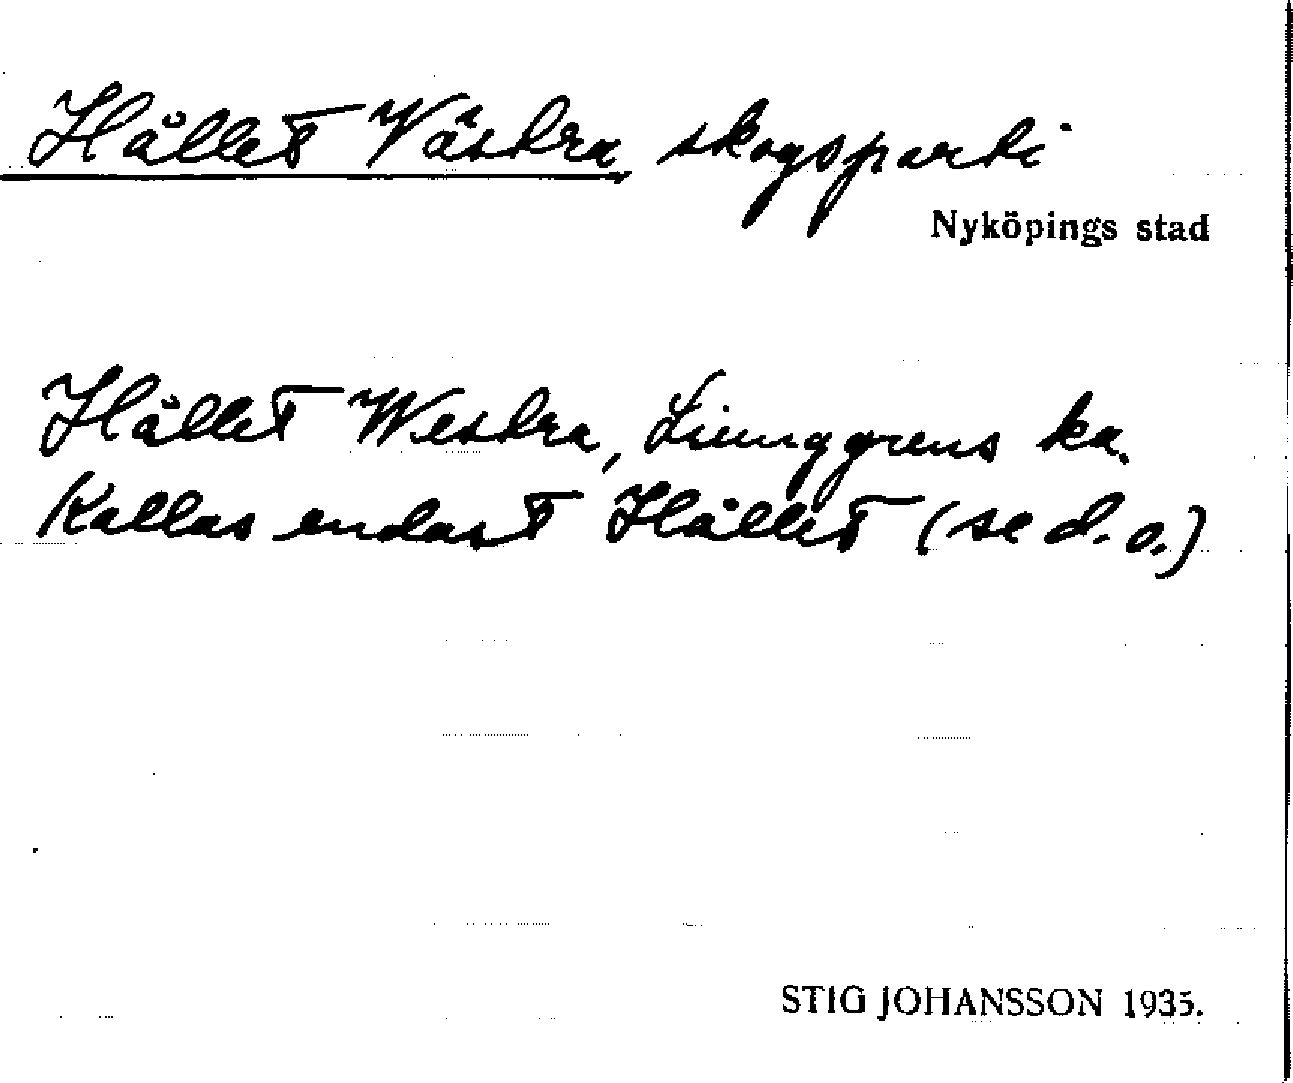 Hållet Västra, skogsparti
Nyköpings stad
Hållet Westra, Liunggrens ka.
Kallas endast Hållet (se d. o.)
STIG JOHANSSON 1935.